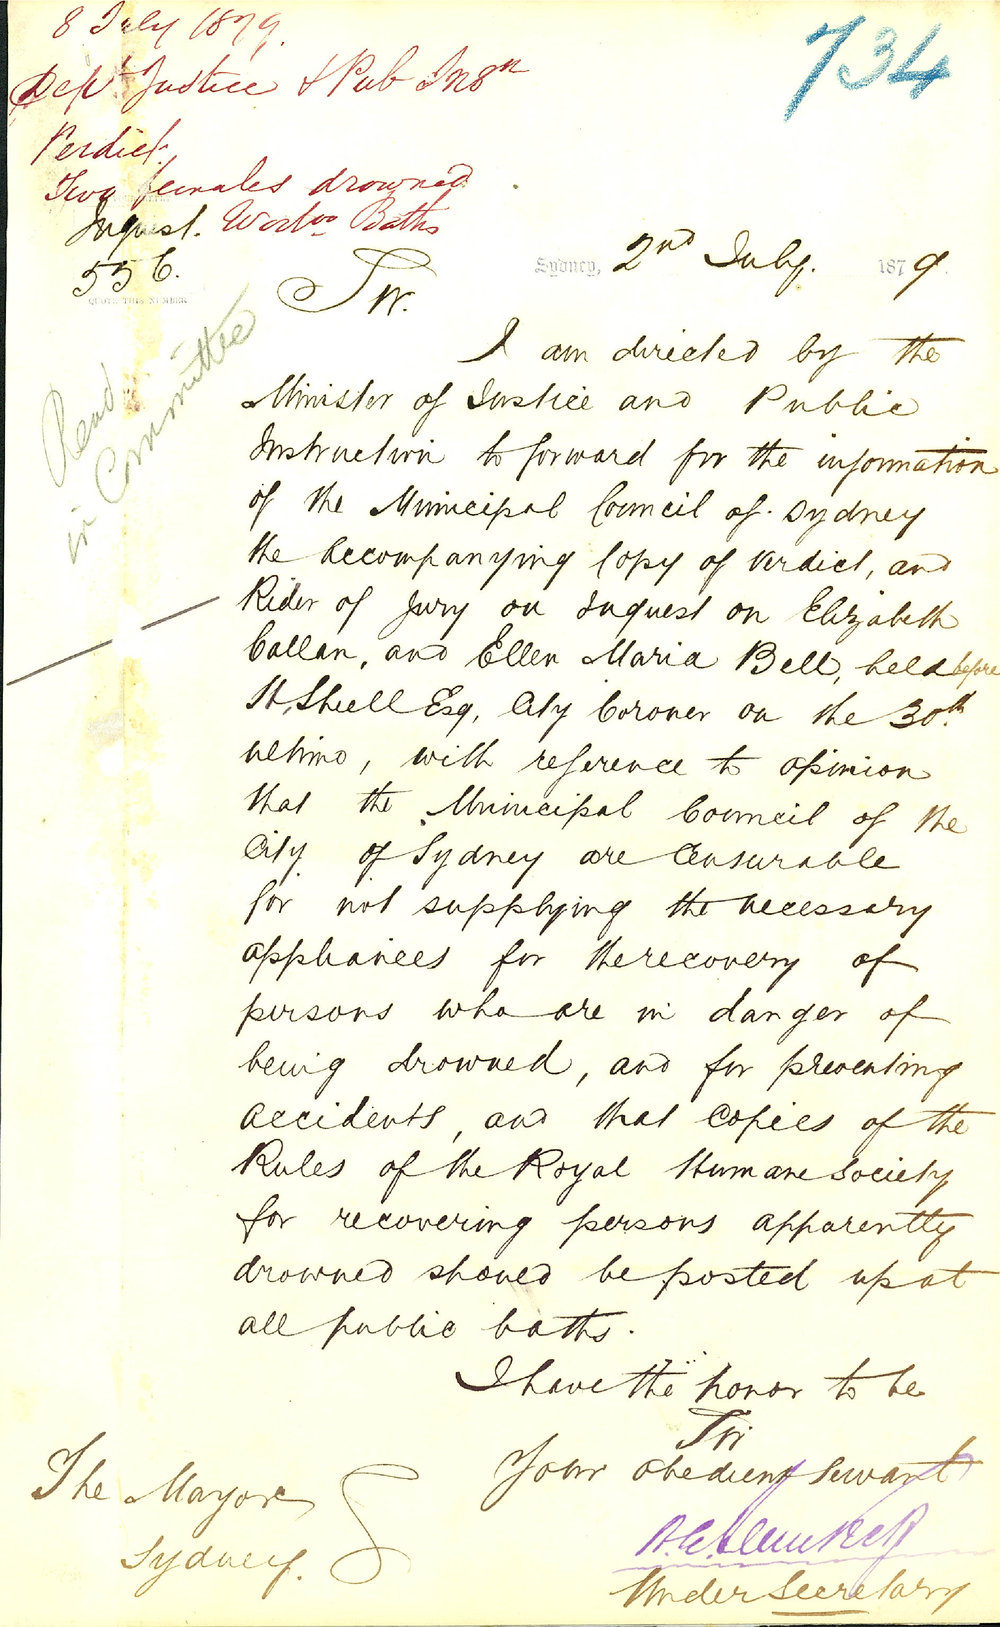 8 July 1879.
734
Dept Justice & Pub Ins n
Verdict
Two females drowned
Inquest. Baths
556.
QUOTE THIS NUMBER
Sydney, 2nd July. 1879
Sir.
Read
in Committee
I am directed by the
Minister of Justice and Public
Instruction to forward for the information
of the Municipal Council of Sydney
the accompanying Copy of Verdict, and
Rider of Jury on Inquest on Elizabeth
Callan, and Ellen Maria Bell, held before
H, Shiell Esq, City Coroner on the 30th
ultimo, with reference to opinion
that the Municipal Council of the
City of Sydney are Censurable
for not supplying the necessary
appliances for the recovery of
persons who are in danger of
being drowned, and for preventing
accidents, and that Copies of the
Rules of the Royal Humane Society
for recovering persons apparently
drowned should be posted up at
all public baths.
I have the honor to be
Sir
Your obedient Servant
Under Secretary
The Mayor
Sydney.